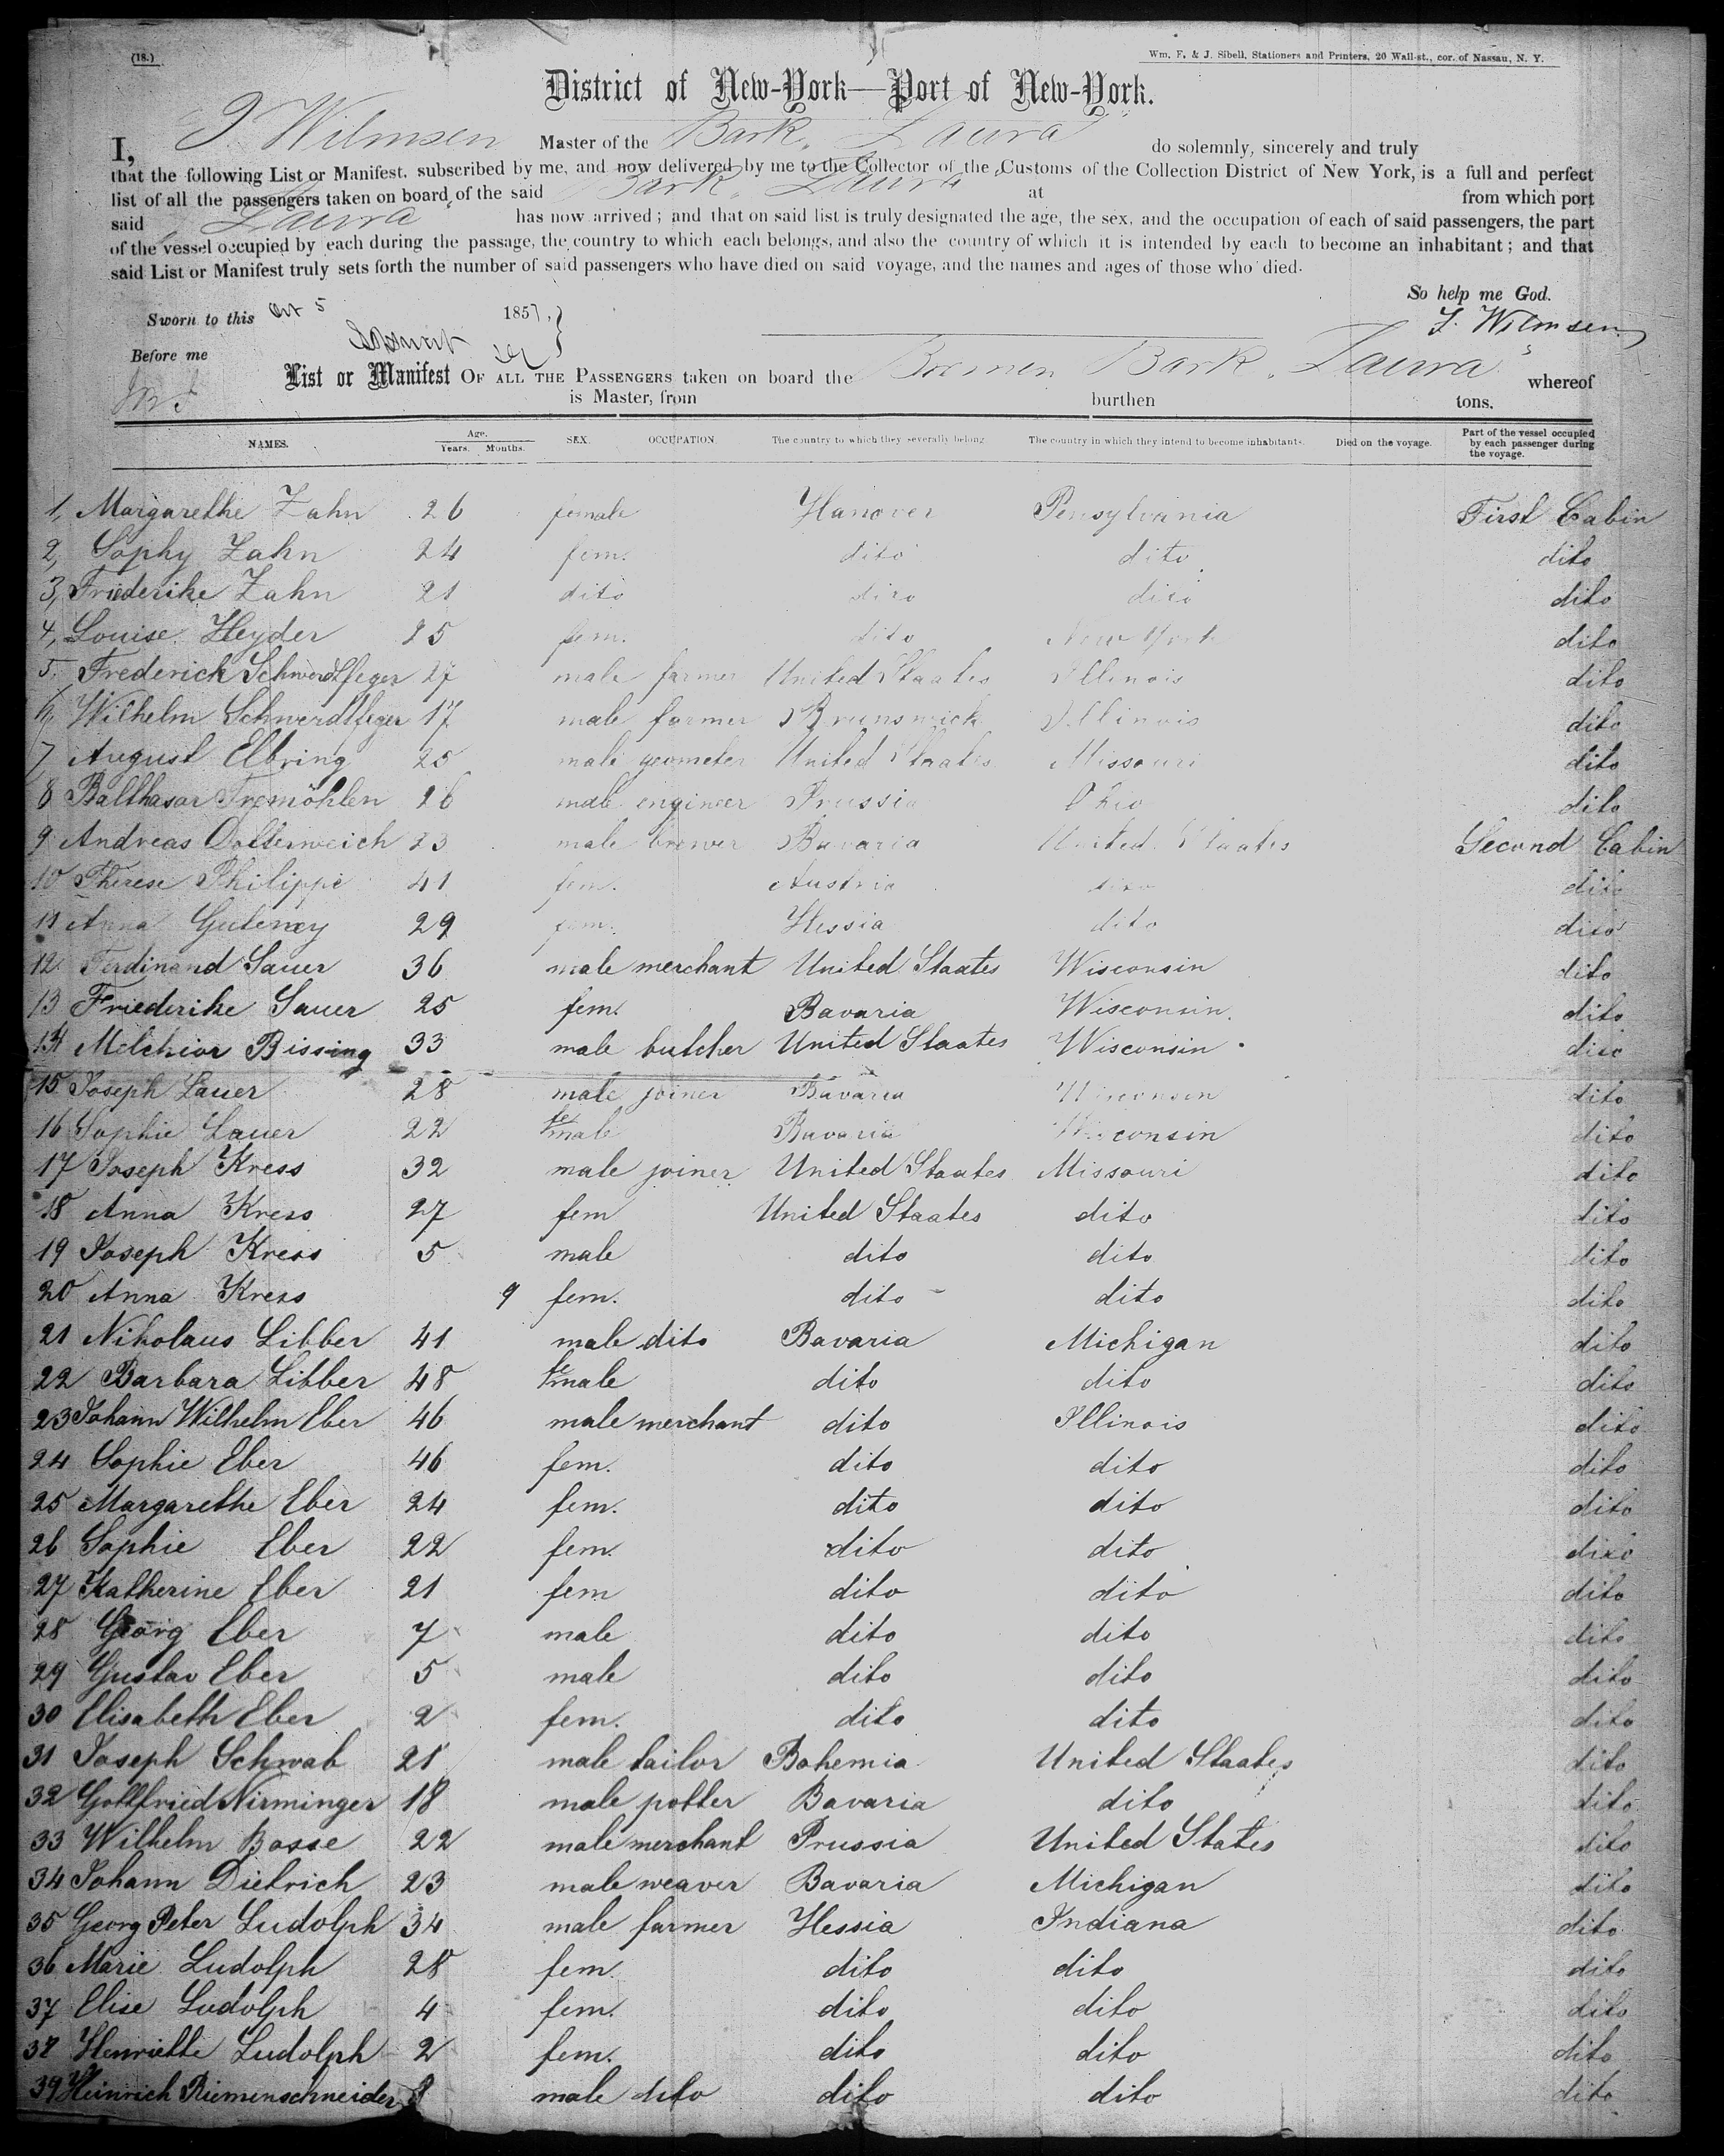 (18.)
Wm. F. & J. Sibell, Stationers and Printers, 20 Wall-st., cor. of Nassau, N. Y.
District of New-York—Port of New-York.
I, J Wilmsen Master of the Bark "Laura" do solemnly, sincerely and truly
that the following List or Manifest, subscribed by me, and now delivered by me to the Collector of the Customs of the Collection District of New York, is a full and perfect
list of all the passengers taken on board of the said Bark "Laura" at from which port
said "Laura" has now arrived; and that on said list is truly designated the age, the sex, and the occupation of each of said passengers, the part
of the vessel occupied by each during the passage, the country to which each belongs, and also the country of which it is intended by each to become an inhabitant; and that
said List or Manifest truly sets forth the number of said passengers who have died on said voyage, and the names and ages of those who died.
So help me God.
Sworn to this Oct 5 1857,
J. Wilmsen
Before me
List or Manifest OF ALL THE PASSENGERS taken on board the Bremen Bark "Laura" whereof
is Master, from burthen tons.
NAMES. Age. Years. Months. SEX. OCCUPATION. The country to which they severally belong. The country in which they intend to become inhabitants. Died on the voyage. Part of the vessel occupied by each passenger during the voyage.
1, Margarethe Zahn 26 female Hanover Pensylvania First Cabin
2, Sophy Zahn 24 fem. dito dito dito
3, Friederike Zahn 21 dito dito dito dito
4, Louise Heyder 25 fem. dito New York dito
5. Frederick Schwerdtfeger 27 male farmer United Staates Illinois dito
6, Wilhelm Schwerdtfeger 17 male farmer Brunswick Illinois dito
7 August Elbring 25 male geometer United Staates Missouri dito
8 Balthasar Tremöhlen 26 male engineer Prussia Ohio dito
9 Andreas 23 male brewer Bavaria United Staates Second Cabin
10 Therese Philippi 41 fem. Austria dito dito
11 Anna 29 fem. Hessia dito dito
12 Ferdinand Sauer 36 male merchant United Staates Wisconsin dito
13 Friederike Sauer 25 fem. Bavaria Wisconsin. dito
14 Melchior Bissing 33 male butcher United Staates Wisconsin dito
15 Joseph Lauer 28 male joiner Bavaria Wisconsin dito
16 Sophie Lauer 22 female Bavaria Wisconsin dito
17 Joseph Kress 32 male joiner United Staates Missouri dito
18 Anna Kress 27 fem United Staates dito dito
19 Joseph Kress 5 male dito dito dito
20 Anna Kress 9 fem. dito dito dito
21 Nikolaus Libber 41 male dito Bavaria Michigan dito
22 Barbara Libber 48 female dito dito dito
23 Johann Wilhelm Eber 46 male merchant dito Illinois dito
24 Sophie Eber 46 fem. dito dito dito
25 Margarethe Eber 24 fem. dito dito dito
26 Sophie Eber 22 fem. dito dito dito
27 Katherine Eber 21 fem dito dito dito
28 Georg Eber 7 male dito dito dito
29 Gustav Eber 5 male dito dito dito
30 Elisabeth Eber 2 fem. dito dito dito
31 Joseph Schwab 21 male tailor Bohemia United Staates dito
32 Gottfried Nirminger 18 male potter Bavaria dito dito
33 Wilhelm Bosse 22 male merchant Prussia United States dito
34 Johann Dietrich 23 male weaver Bavaria Michigan dito
35 Georg Peter Ludolph 34 male farmer Hessia Indiana dito
36 Marie Ludolph 28 fem. dito dito dito
37 Elise Ludolph 4 fem. dito dito dito
38 Henriette Ludolph 2 fem. dito dito dito
39 Heinrich Riemenschneider male dito dito dito dito